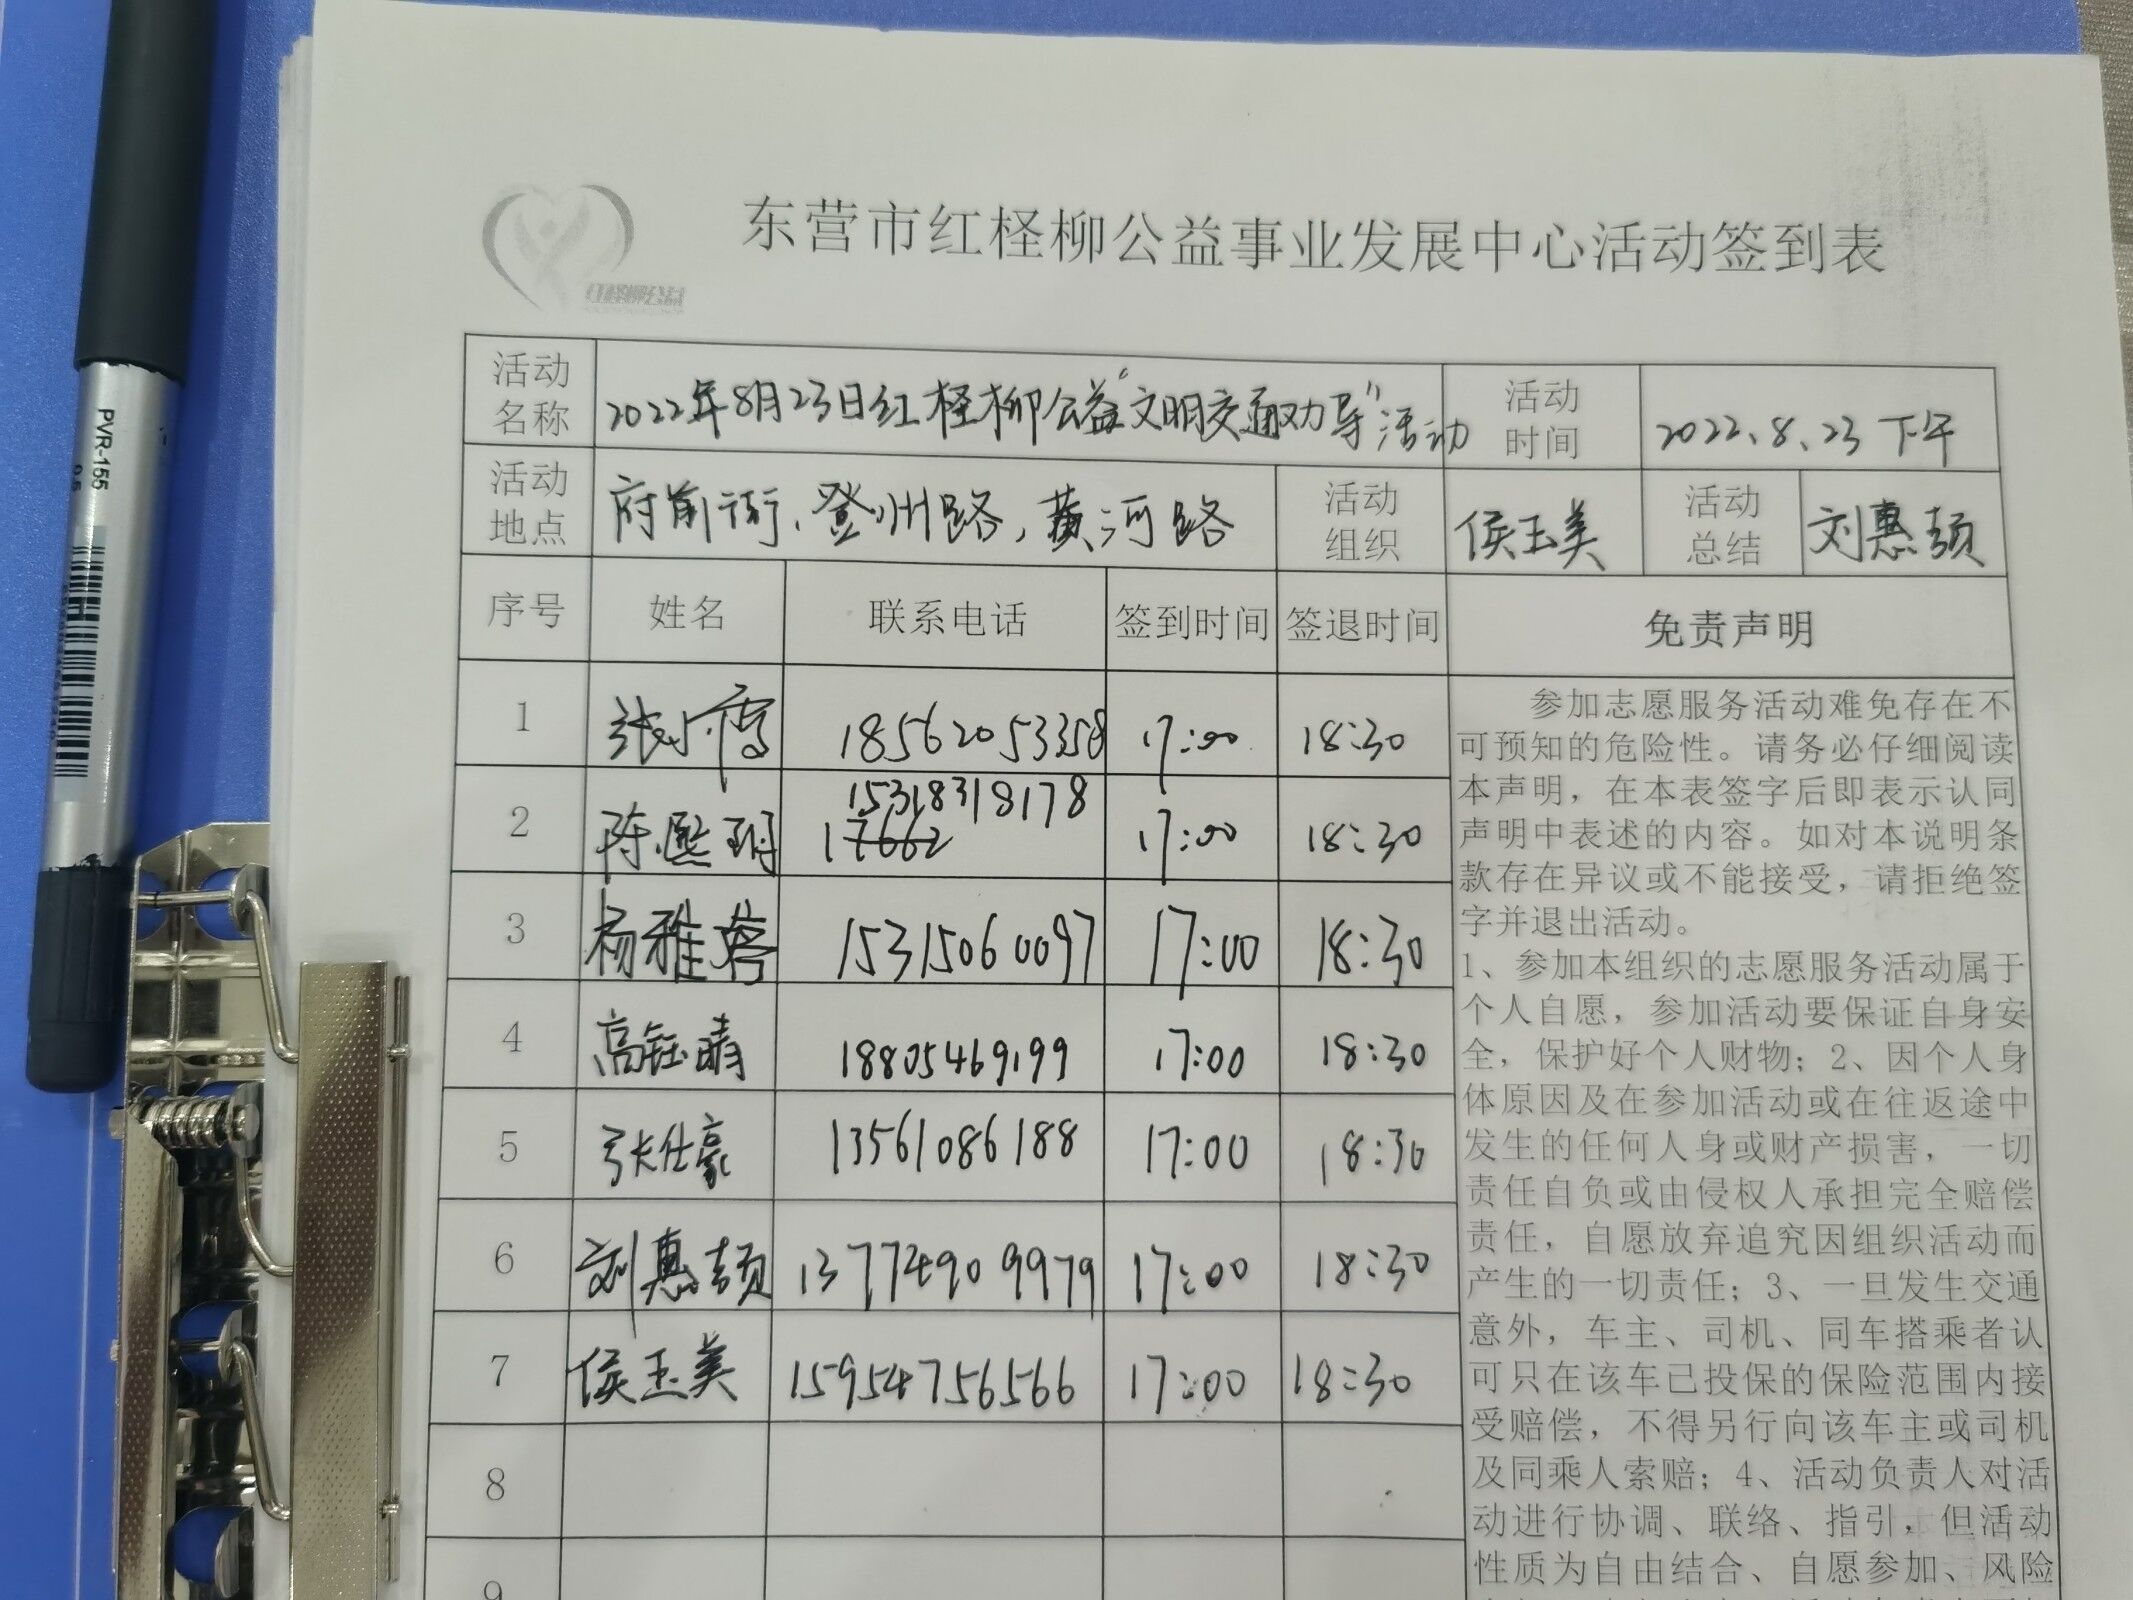 东营市红柽柳公益事业发展中心活动签到表
红柽柳公益
活动名称 2022年8月23日红柽柳公益"文明交通劝导"活动 活动时间 2022.8.23 下午
活动地点 府前街、登州路,黄河路 活动组织 侯玉美 活动总结 刘惠颉
序号 姓名 联系电话 签到时间 签退时间 免责声明
1 18562053358 17:00 18:30
2 陈熙玥 15318318178 17662 17:00 18:30
3 杨雅蓉 15315060097 17:00 18:30
4 高钰晴 18805469199 17:00 18:30
5 张仕豪 13561086188 17:00 18:30
6 刘惠颉 13774909979 17:00 18:30
7 侯玉美 15954756566 17:00 18:30
8
9
参加志愿服务活动难免存在不
可预知的危险性。请务必仔细阅读
本声明，在本表签字后即表示认同
声明中表述的内容。如对本说明条
款存在异议或不能接受，请拒绝签
字并退出活动。
1、参加本组织的志愿服务活动属于
个人自愿，参加活动要保证自身安
全，保护好个人财物；2、因个人身
体原因及在参加活动或在往返途中
发生的任何人身或财产损害，一切
责任自负或由侵权人承担完全赔偿
责任，自愿放弃追究因组织活动而
产生的一切责任；3、一旦发生交通
意外，车主、司机、同车搭乘者认
可只在该车已投保的保险范围内接
受赔偿，不得另行向该车主或司机
及同乘人索赔；4、活动负责人对活
动进行协调、联络、指引，但活动
性质为自由结合、自愿参加、风险
PVR-155
0.5